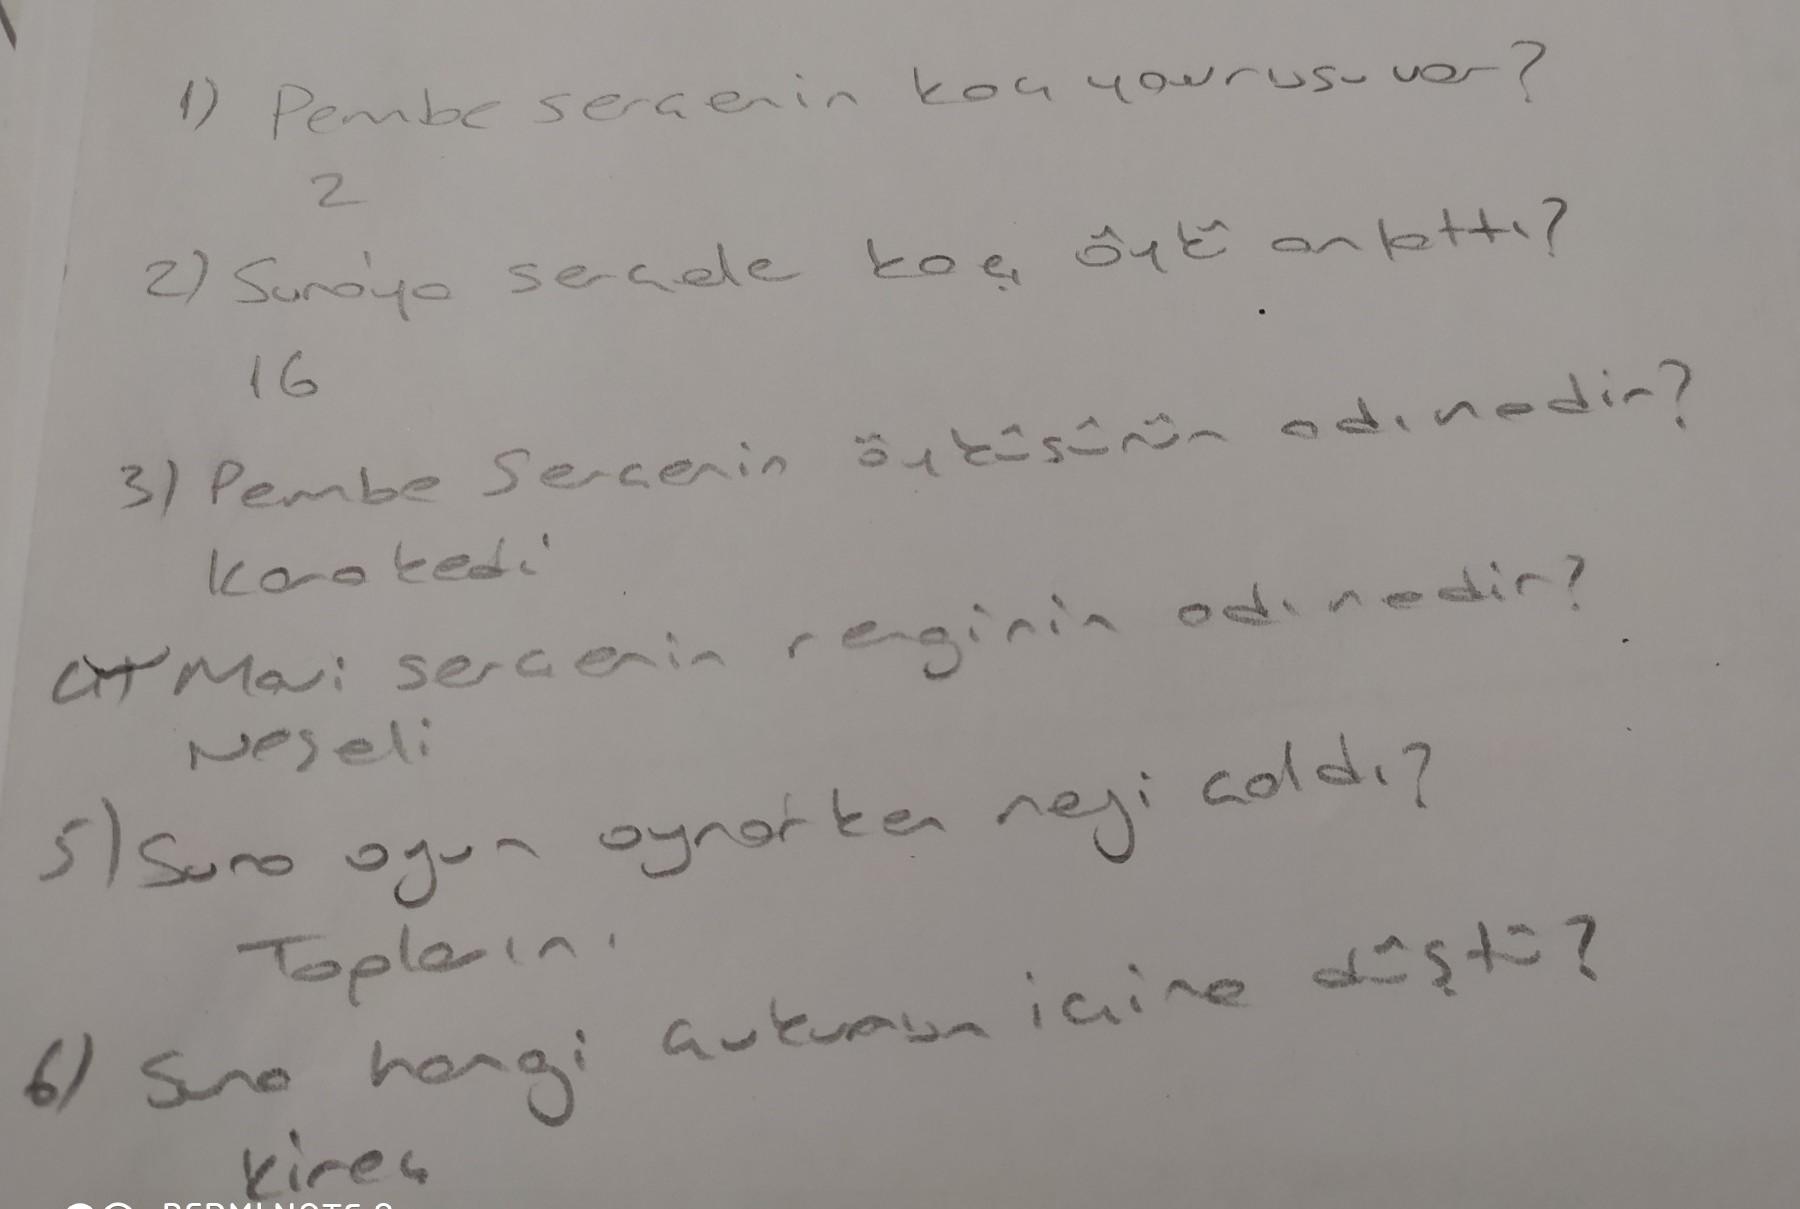 1) Pembe serçenin kaç yavrusu var?
2
2) Suna'ya serçele kaç öykü anlattı?
16
3) Pembe Serçenin öyküsünün adı nedir?
Kara kedi
4) Mavi serçenin renginin adı nedir?
Neşeli
5) Suna oyun oynarken neyi çaldı?
Toplarını
6) Suna hangi çukurun içine düştü?
Kireç
REDMI NOTE 8